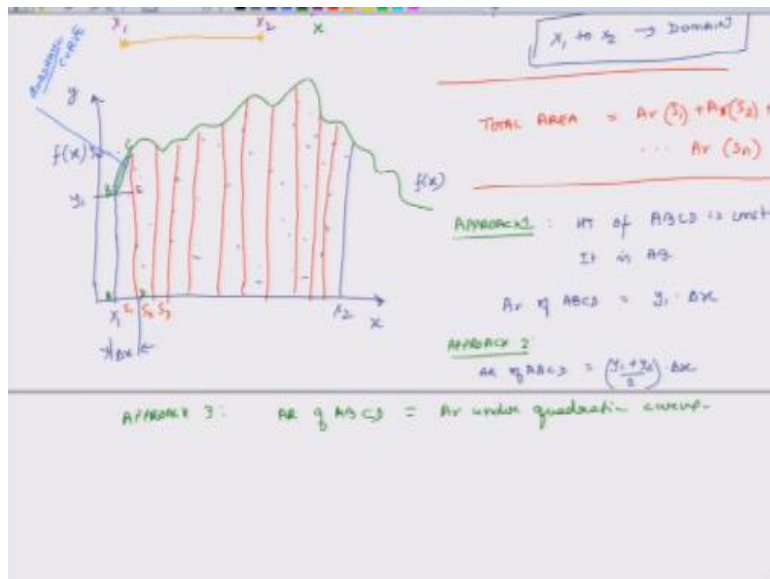 x₁ x₂ x
x₁ to x₂ → DOMAIN
QUADRATIC CURVE
y
f(x)
TOTAL AREA = Ar (S₁) + Ar (S₂) +
... Ar (Sn)
y₁
f(x)
APPROACH 1 : HT of ABCD is const
It is AB
Ar of ABCD = y₁ · Δx
x₁ S₁ S₂ S₃ x₂ x
Δx
APPROACH 2
AR of ABCD = (y₁+y₂/2) · Δx
APPROACH 3 : AR of ABCD = Ar under quadratic curve